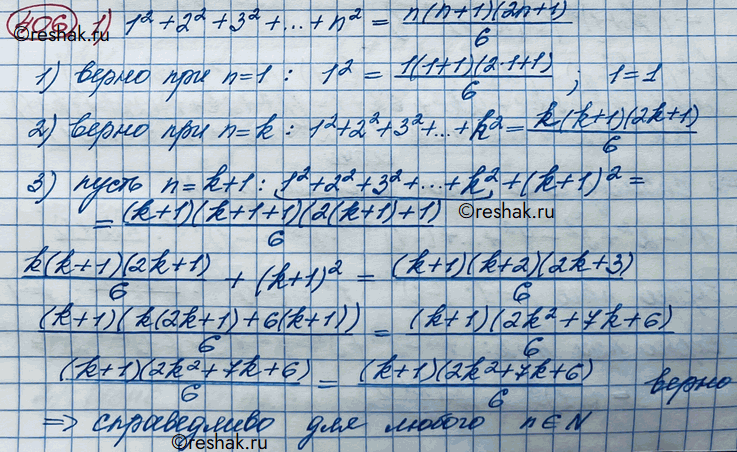 406 1) 1² + 2² + 3² + ... + n² = n(n+1)(2n+1)/6
1) верно при n=1 : 1² = 1(1+1)(2·1+1)/6 ; 1=1
2) верно при n=k : 1²+2²+3²+...+k² = k(k+1)(2k+1)/6
3) пусть n=k+1 : 1²+2²+3²+...+k²+(k+1)² =
= (k+1)(k+1+1)(2(k+1)+1)/6 ©reshak.ru
k(k+1)(2k+1)/6 + (k+1)² = (k+1)(k+2)(2k+3)/6
(k+1)(k(2k+1)+6(k+1))/6 = (k+1)(2k²+7k+6)/6
(k+1)(2k²+7k+6)/6 = (k+1)(2k²+7k+6)/6 верно
⇒ справедливо для любого n∈N
©reshak.ru